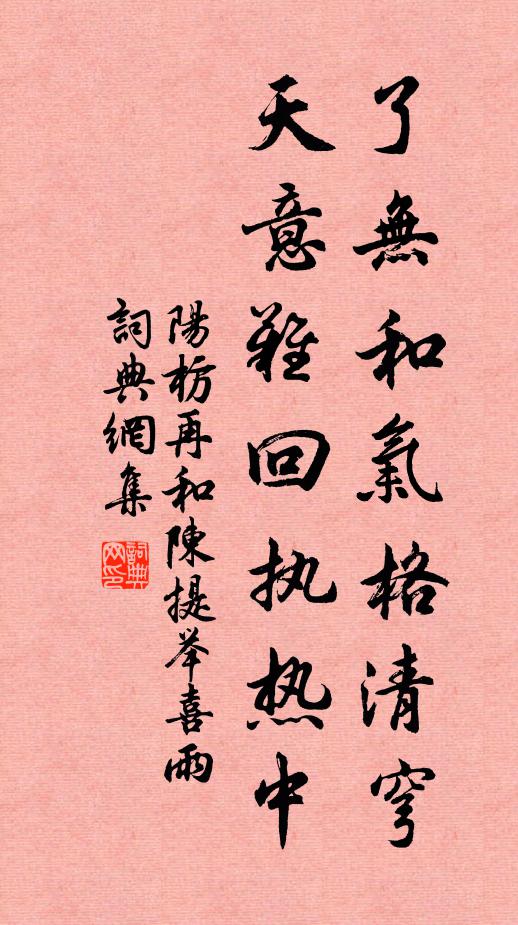 了無和氣格清穹
天意難回执热中
陽枋再和陳提举喜雨
詞典網集
詞典网印